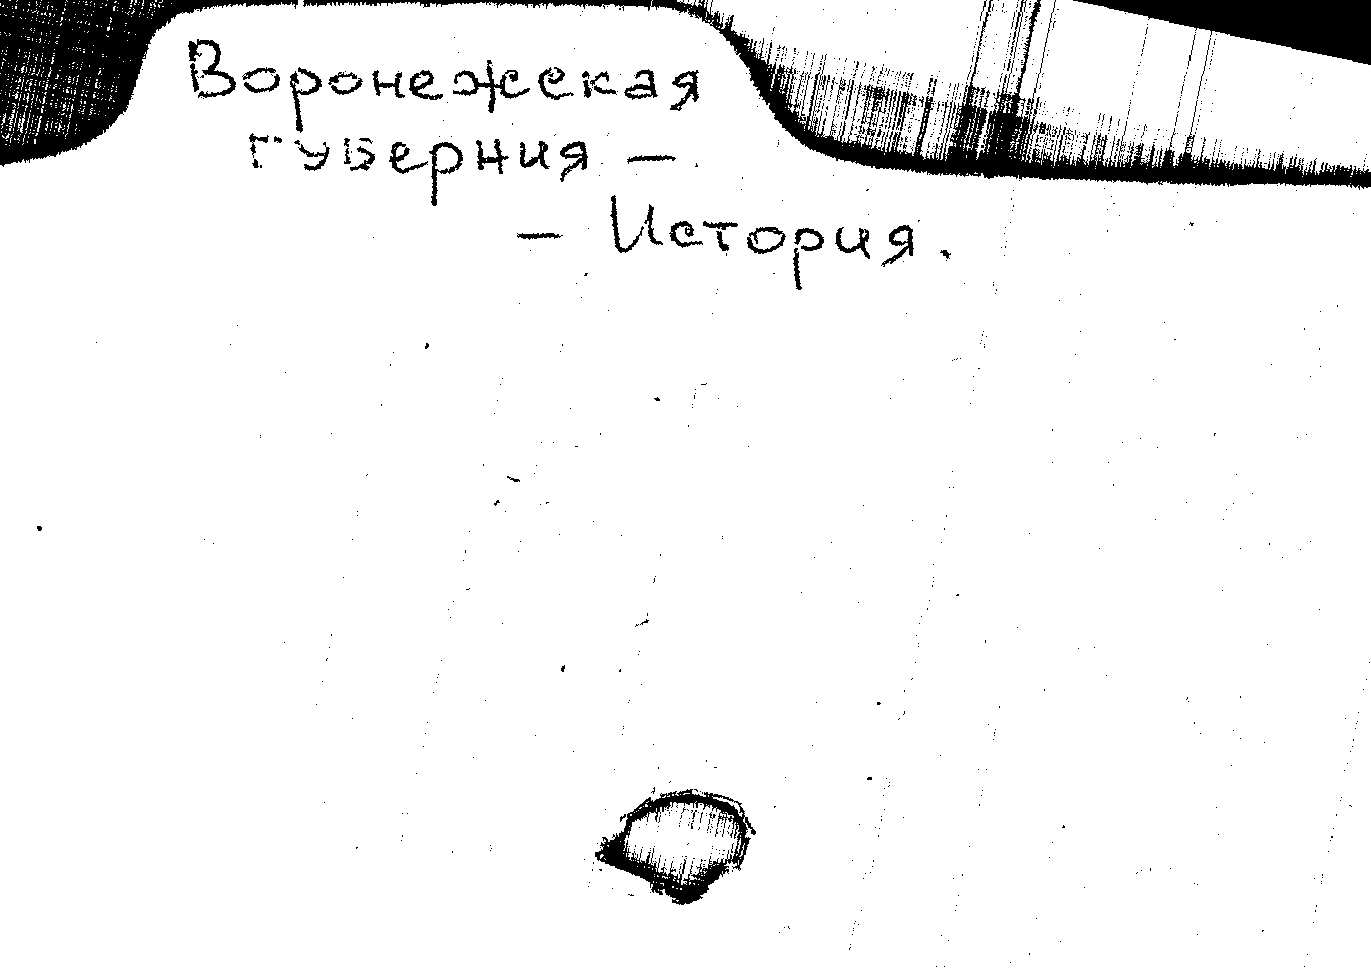 Воронежская
губерния —
— История.